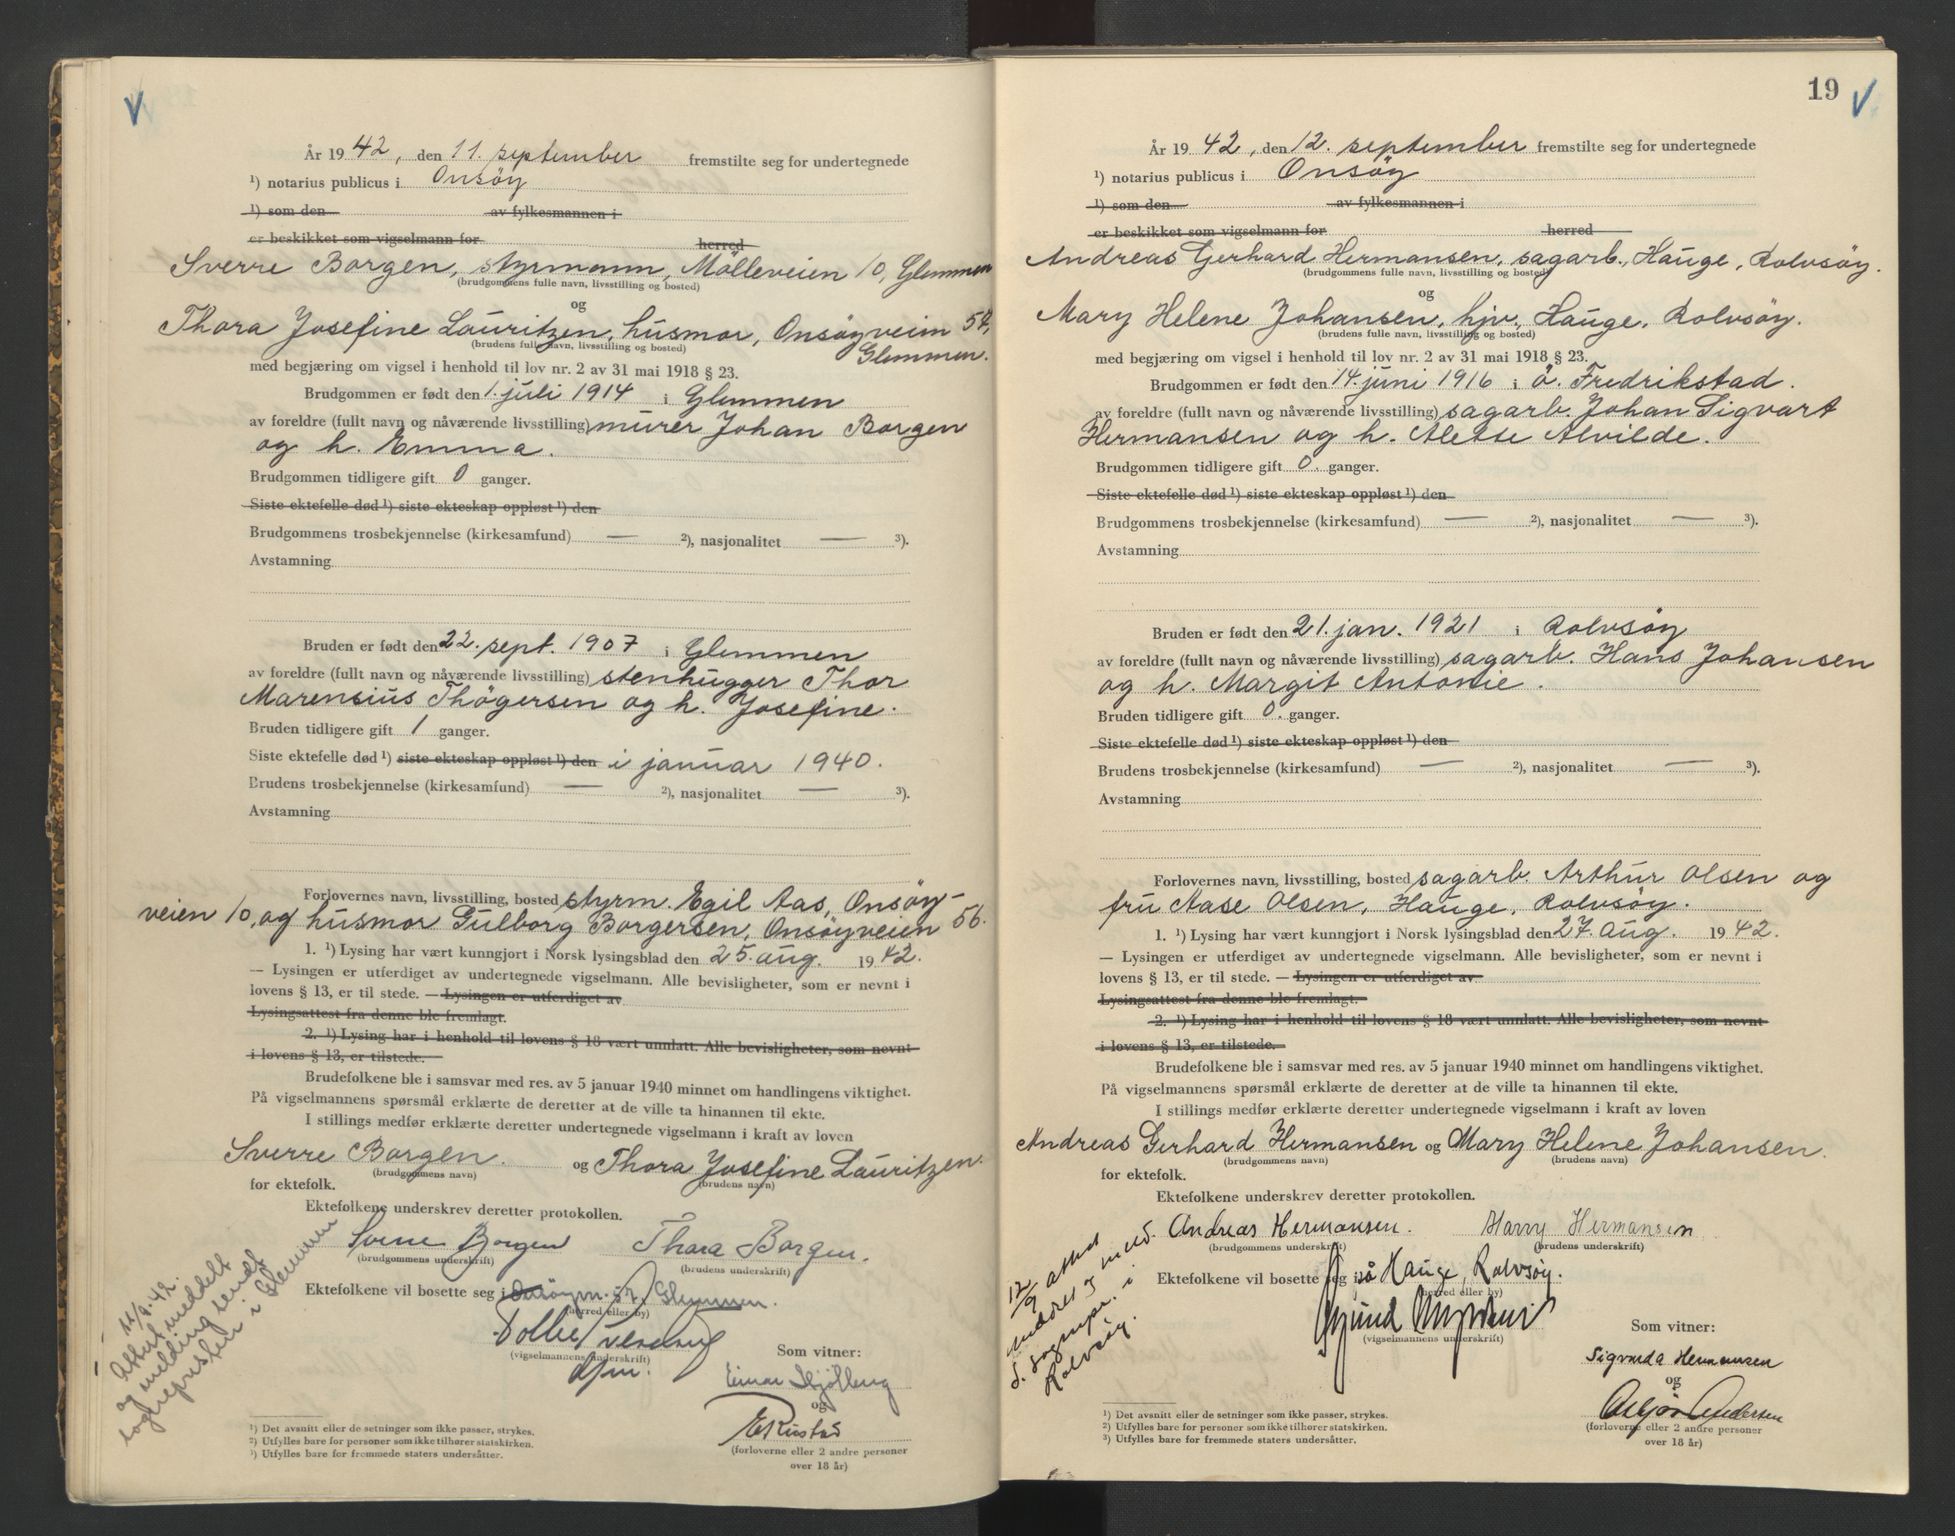 År 1942, den 11. september fremstilte seg for undertegnede
¹) notarius publicus i Onsöy
¹) som den av fylkesmannen i
er beskikket som vigselmann for herred
Sverre Borgen, styrmann, Mölleveien 10, Glemmen
(brudgommens fulle navn, livsstilling og bosted)
og
Thora Josefine Lauritzen, husmor, Onsöyveien 54,
(brudens fulle navn, livsstilling og bosted) Glemmen.
med begjæring om vigsel i henhold til lov nr. 2 av 31 mai 1918 § 23.
Brudgommen er født den 1. juli 1914 i Glemmen
av foreldre (fullt navn og nåværende livsstilling) murer Johan Borgen
og h. Emma.
Brudgommen tidligere gift 0 ganger.
Siste ektefelle død ¹) siste ekteskap oppløst ¹) den
Brudgommens trosbekjennelse (kirkesamfund) — ²), nasjonalitet — ³).
Avstamning
Bruden er født den 22. sept. 1907 i Glemmen
av foreldre (fullt navn og nåværende livsstilling) stenhugger Thor
Marensius Thögersen og h. Josefine.
Bruden tidligere gift 1 ganger.
Siste ektefelle død ¹) siste ekteskap oppløst ¹) den i januar 1940.
Brudens trosbekjennelse (kirkesamfund) — ²), nasjonalitet — ³).
Avstamning
Forlovernes navn, livsstilling, bosted styrm. Egil Aas, Onsöy-
veien 10, og husmor Gulborg Borgersen, Onsöyveien 56.
1. ¹) Lysing har vært kunngjort i Norsk lysingsblad den 25. aug. 1942.
— Lysingen er utferdiget av undertegnede vigselmann. Alle bevisligheter, som er nevnt i
lovens § 13, er til stede. — Lysingen er utferdiget av
Lysingsattest fra denne ble fremlagt.
2. ¹) Lysing har i henhold til lovens § 18 vært unnlatt. Alle bevisligheter, som nevnt
i lovens § 13, er tilstede. —
Brudefolkene ble i samsvar med res. av 5 januar 1940 minnet om handlingens viktighet.
På vigselmannens spørsmål erklærte de deretter at de ville ta hinannen til ekte.
I stillings medfør erklærte deretter undertegnede vigselmann i kraft av loven
Sverre Borgen. og Thora Josefine Lauritzen.
(brudgommens navn) (brudens navn)
for ektefolk.
Ektefolkene underskrev deretter protokollen.
Sverre Borgen Thora Borgen.
(brudgommens underskrift) (brudens underskrift)
Ektefolkene vil bosette seg i Glemmen.
(herred eller by)
(vigselmannens underskrift)
Som vitner:
og
(forloverne eller 2 andre personer
over 18 år)
11/9.42.
Attest meddelt
og melding sendt
sogneprsten i Glemmen
¹) Det avsnitt eller de setninger som ikke passer, strykes.
²) Utfylles bare for personer som ikke tilhører statskirken.
³) Utfylles bare for fremmede staters undersåtter.
19
År 1942, den 12. september fremstilte seg for undertegnede
¹) notarius publicus i Onsöy
¹) som den av fylkesmannen i
er beskikket som vigselmann for herred
Andreas Gerhard Hermansen, sagarb., Hauge, Rolvsöy.
(brudgommens fulle navn, livsstilling og bosted)
og
Mary Helene Johansen, hjv., Hauge, Rolvsöy.
(brudens fulle navn, livsstilling og bosted)
med begjæring om vigsel i henhold til lov nr. 2 av 31 mai 1918 § 23.
Brudgommen er født den 14. juni 1916 i ö. Fredrikstad.
av foreldre (fullt navn og nåværende livsstilling) sagarb. Johan Sigvart
Hermansen og h. Alette Alvilde.
Brudgommen tidligere gift 0. ganger.
Siste ektefelle død ¹) siste ekteskap oppløst ¹) den
Brudgommens trosbekjennelse (kirkesamfund) — ²), nasjonalitet — ³).
Avstamning
Bruden er født den 21. jan. 1921 i Rolvsöy
av foreldre (fullt navn og nåværende livsstilling) sagarb. Hans Johansen
og h. Margit Antonie.
Bruden tidligere gift 0. ganger.
Siste ektefelle død ¹) siste ekteskap oppløst ¹) den
Brudens trosbekjennelse (kirkesamfund) — ²), nasjonalitet — ³).
Avstamning
Forlovernes navn, livsstilling, bosted sagarb. Arthur Olsen og
fru Aase Olsen, Hauge, Rolvsöy.
1. ¹) Lysing har vært kunngjort i Norsk lysingsblad den 27. aug. 1942.
— Lysingen er utferdiget av undertegnede vigselmann. Alle bevisligheter, som er nevnt i
lovens § 13, er til stede. — Lysingen er utferdiget av
Lysingsattest fra denne ble fremlagt.
2. ¹) Lysing har i henhold til lovens § 18 vært unnlatt. Alle bevisligheter, som nevnt
i lovens § 13, er tilstede.
Brudefolkene ble i samsvar med res. av 5 januar 1940 minnet om handlingens viktighet.
På vigselmannens spørsmål erklærte de deretter at de ville ta hinannen til ekte.
I stillings medfør erklærte deretter undertegnede vigselmann i kraft av loven
Andreas Gerhard Hermansen og Mary Helene Johansen.
(brudgommens navn) (brudens navn)
for ektefolk.
Ektefolkene underskrev deretter protokollen.
Andreas Hermansen. Mary Hermansen
(brudgommens underskrift) (brudens underskrift)
Ektefolkene vil bosette seg i på Hauge, Rolvsöy.
(herred eller by)
(vigselmannens underskrift)
Som vitner:
Sigvarda Hermansen
og
Asbjörn Andersen
(forloverne eller 2 andre personer
over 18 år)
12/9 attest
og meld.
s. sognepr. i
Rolvsöy.
¹) Det avsnitt eller de setninger som ikke passer, strykes.
²) Utfylles bare for personer som ikke tilhører statskirken.
³) Utfylles bare for fremmede staters undersåtter.